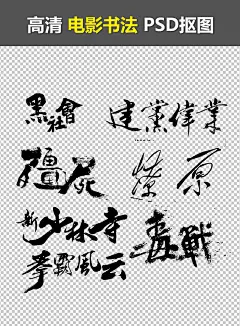 高清 电影书法 PSD抠图
黑社會
建黨偉業
殭屍
燎原
新少林寺
毒戰
拳霸風云